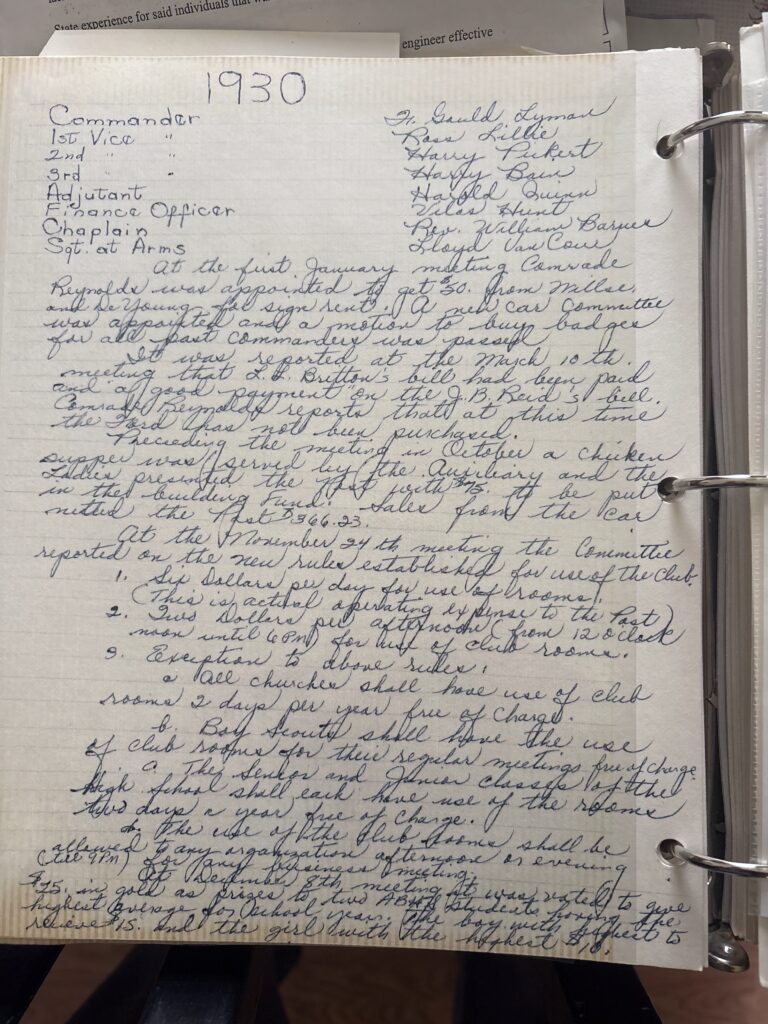 State experience for said individuals that
engineer effective
1930
Commander H. Gould Lyman
1st Vice " Ross Lillie
2nd " " Harry Pickert
3rd " Harry Bain
Adjutant Harold Quinn
Finance Officer Vilas Hunt
Chaplain Rev. William Barnes
Sgt. at Arms Lloyd Van Cour
At the first January meeting Comrade
Reynolds was appointed to get $50. from Millse
and DeYoung for sign rent. A new car Committee
was appointed and a motion to buy badges
for all past commanders was passed
It was reported at the March 10 th.
meeting that L.L. Britton's bill had been paid
and a good payment on the J.B. Reid's bill.
Comrade Reynolds reports that at this time
the Ford has not been purchased.
Preceding the meeting in October a chicken
supper was served by the Auxiliary and the
Ladies presented the Post with $75. to be put
in the building Fund. Sales from the car
netted the Post $366.23.
At the November 24 th meeting the Committee
reported on the new rules established for use of the Club.
1. Six Dollars per day for use of rooms.
(This is actual operating expense to the Post)
2. Two Dollars per afternoon (from 12 o'clock
noon until 6 PM) for use of club rooms.
3. Exception to above rules:
a All churches shall have use of club
rooms 2 days per year free of charge.
b. Boy Scouts shall have the use
of club rooms for their regular meetings free of charge
c. The Senior and Junior classes of the
High School shall each have use of the rooms
two days a year free of charge.
d. The use of the club rooms shall be
allowed to any organization afternoon or evening
(till 9 PM) for any business meeting.
At December 8th meeting it was voted to give
$25. in gold as prizes to two ABHS students having the
highest average for school year. The boy with highest to
recieve $15. and the girl with the highest $10.